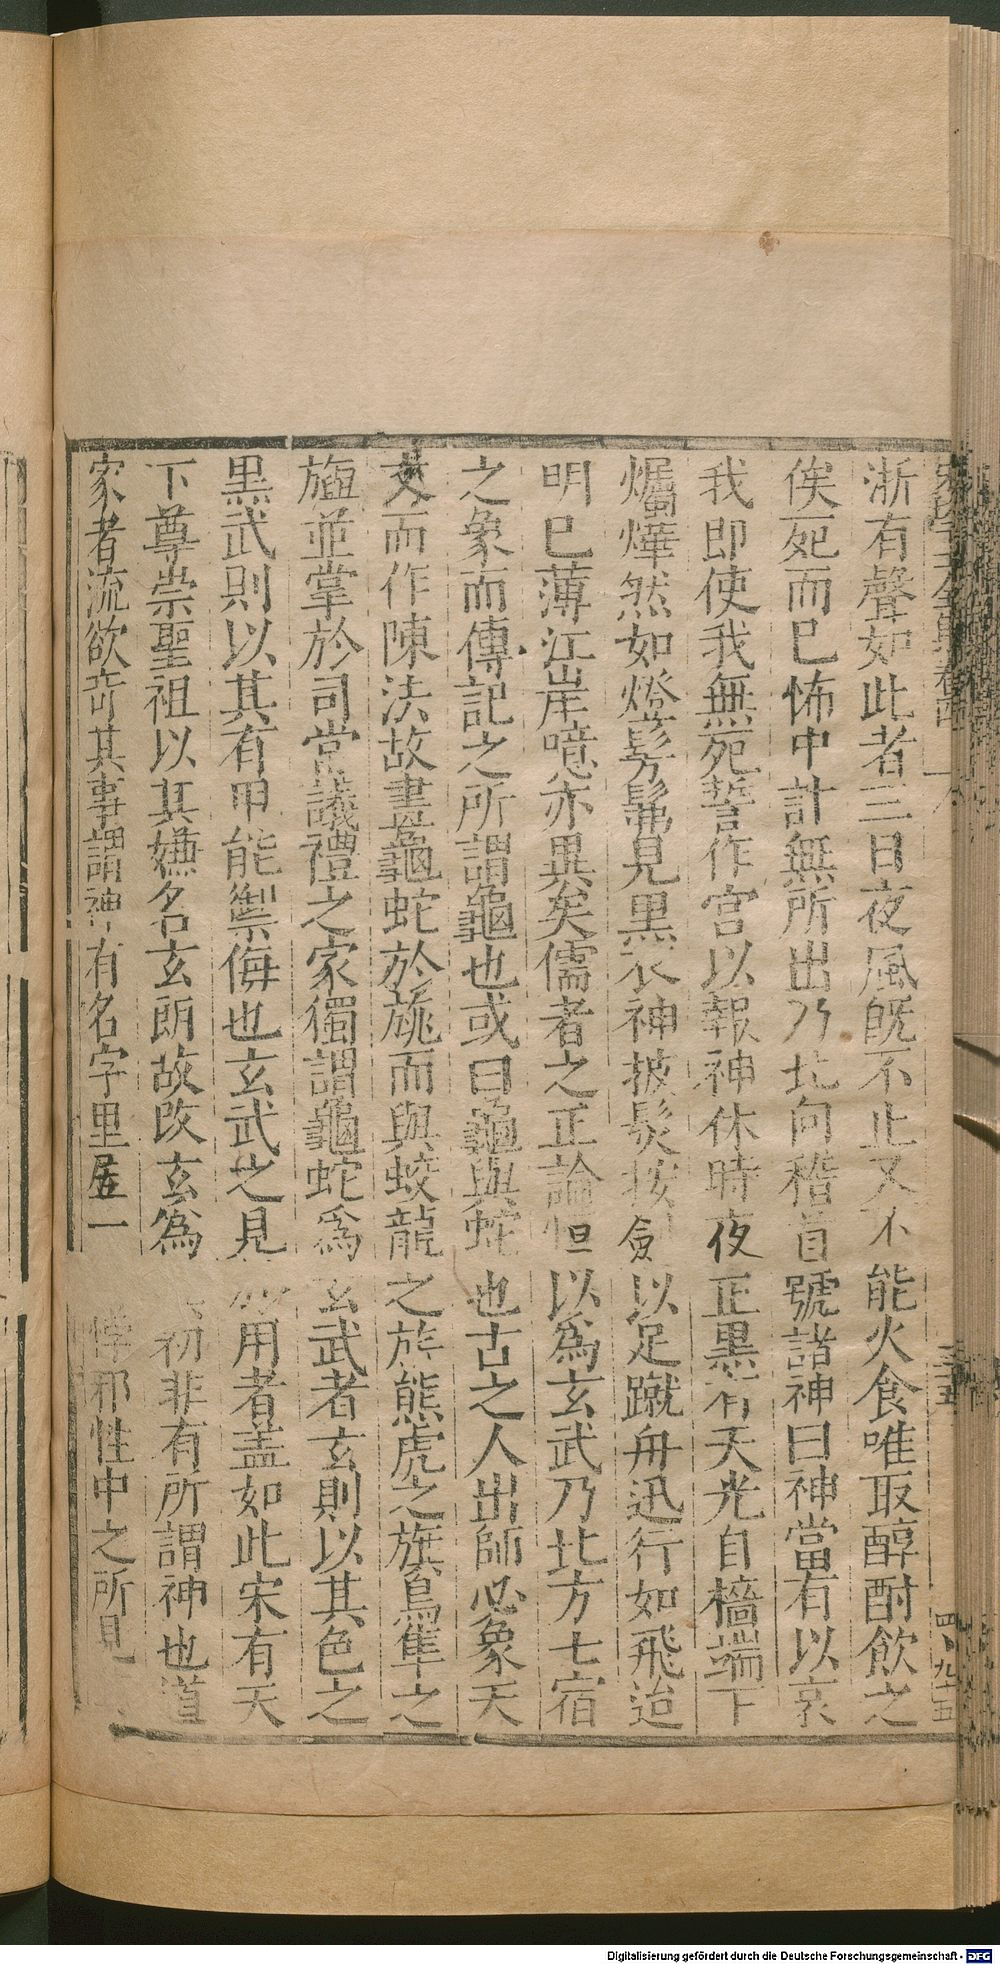 浙有聲如此者三日夜風旣不止又不能火食唯取醇酎飲之
俟死而已怖中計無所出乃北向稽首號諸神曰神當有以哀
我即使我無死誓作宮以報神休時夜正黑有天光自檣端下
爥燁然如燈髣髴見黑衣神披髮按劍以足蹴舟迅行如飛迨
明已薄江岸噫亦異矣儒者之正論但以為玄武乃北方七宿
之象而傳記之所謂龜也或曰龜與蛇也古之人出師必象天
文而作陳法故畫龜蛇於旐而與蛟龍之旂熊虎之旗鳥隼之
旟並掌於司常議禮之家獨謂龜蛇爲玄武者玄則以其色之
黑武則以其有甲能禦侮也玄武之見用者盖如此宋有天
下尊崇聖祖以其嫌名玄朗故改玄為初非有所謂神也道
家者流欲奇其事謂神有名字里居一怪邪性中之所見
三十五
四、九十五
Digitalisierung gefördert durch die Deutsche Forschungsgemeinschaft - DFG